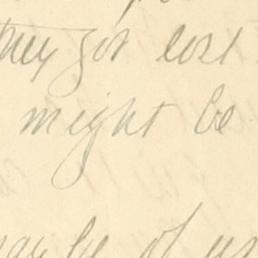 They got lost
might be
may be of us